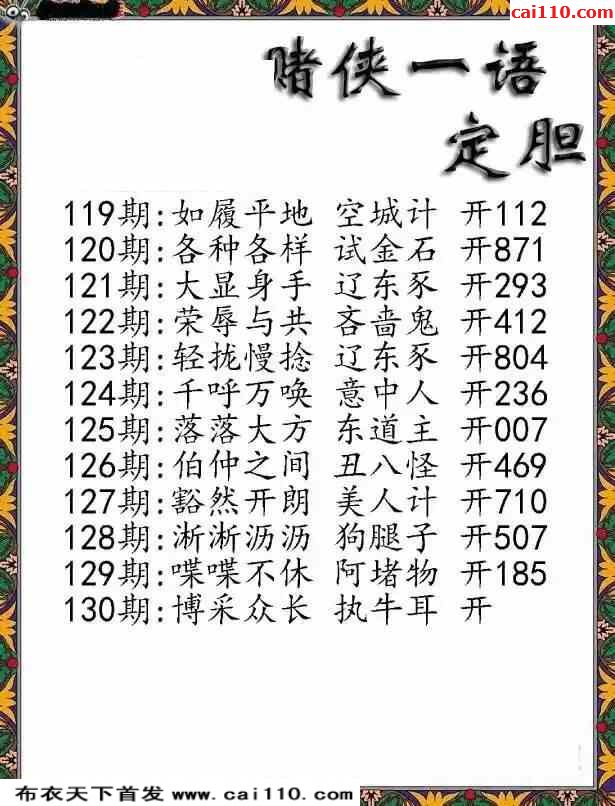 cai110.com
赌侠一语
定胆
119期:如履平地 空城计 开112
120期:各种各样 试金石 开871
121期:大显身手 辽东豕 开293
122期:荣辱与共 吝啬鬼 开412
123期:轻拢慢捻 辽东豕 开804
124期:千呼万唤 意中人 开236
125期:落落大方 东道主 开007
126期:伯仲之间 丑八怪 开469
127期:豁然开朗 美人计 开710
128期:淅淅沥沥 狗腿子 开507
129期:喋喋不休 阿堵物 开185
130期:博采众长 执牛耳 开
布衣天下首发 www.cai110.com